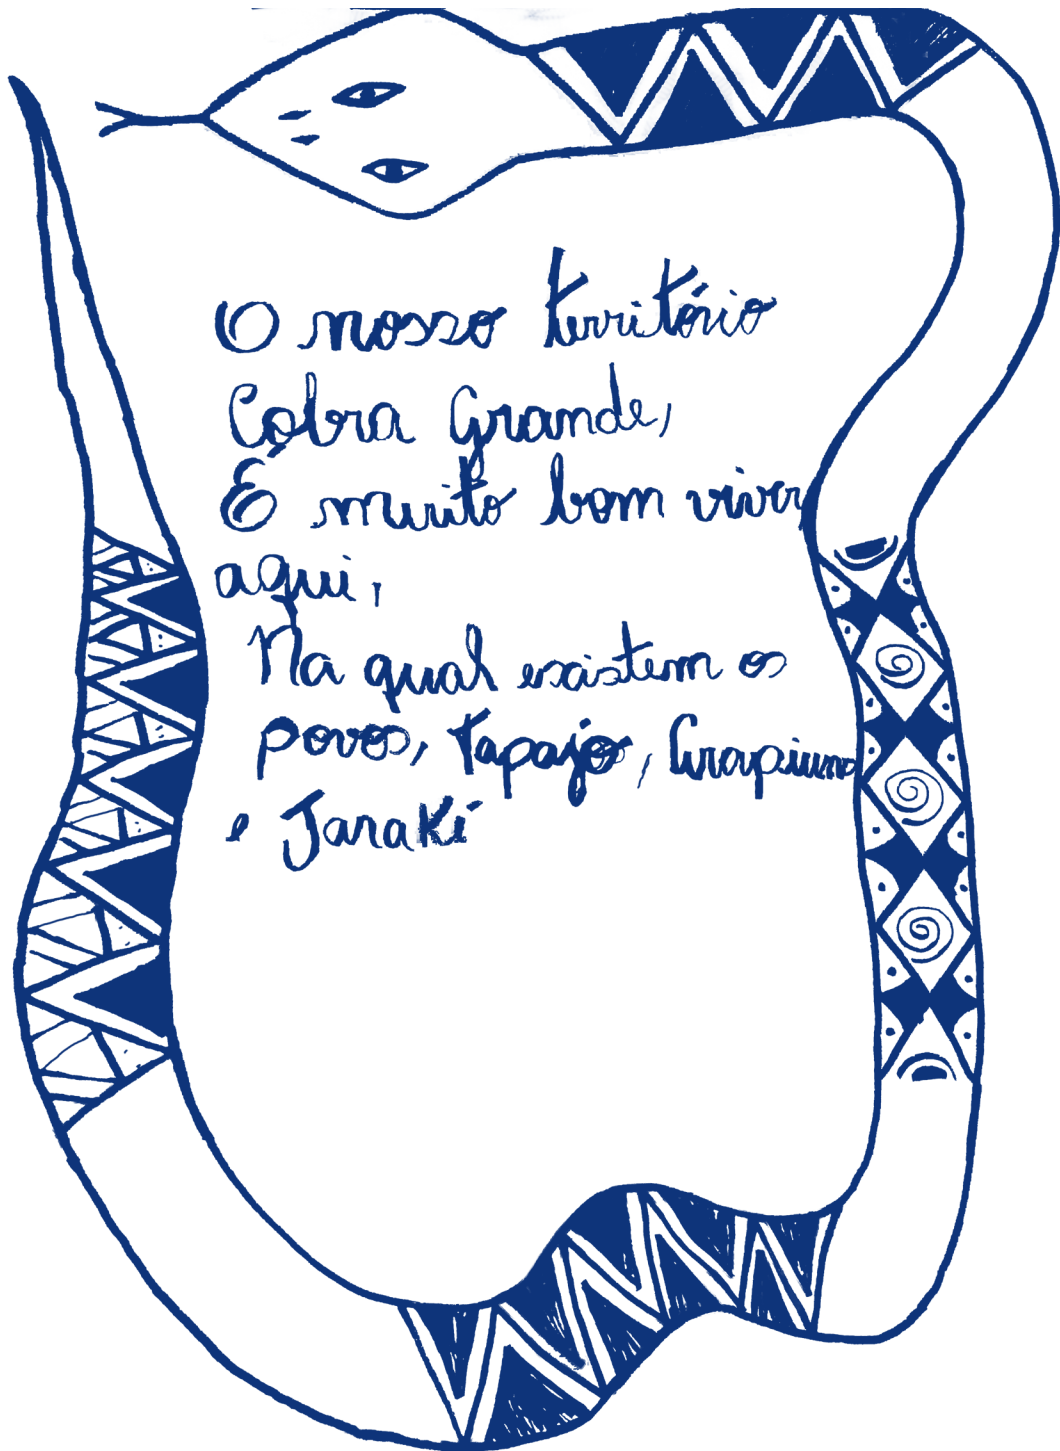 O nosso território
Cobra Grande,
É muito bom viver
aqui,
Na qual existem os
povos, Tapajó, Arapiuns
e Jaraki